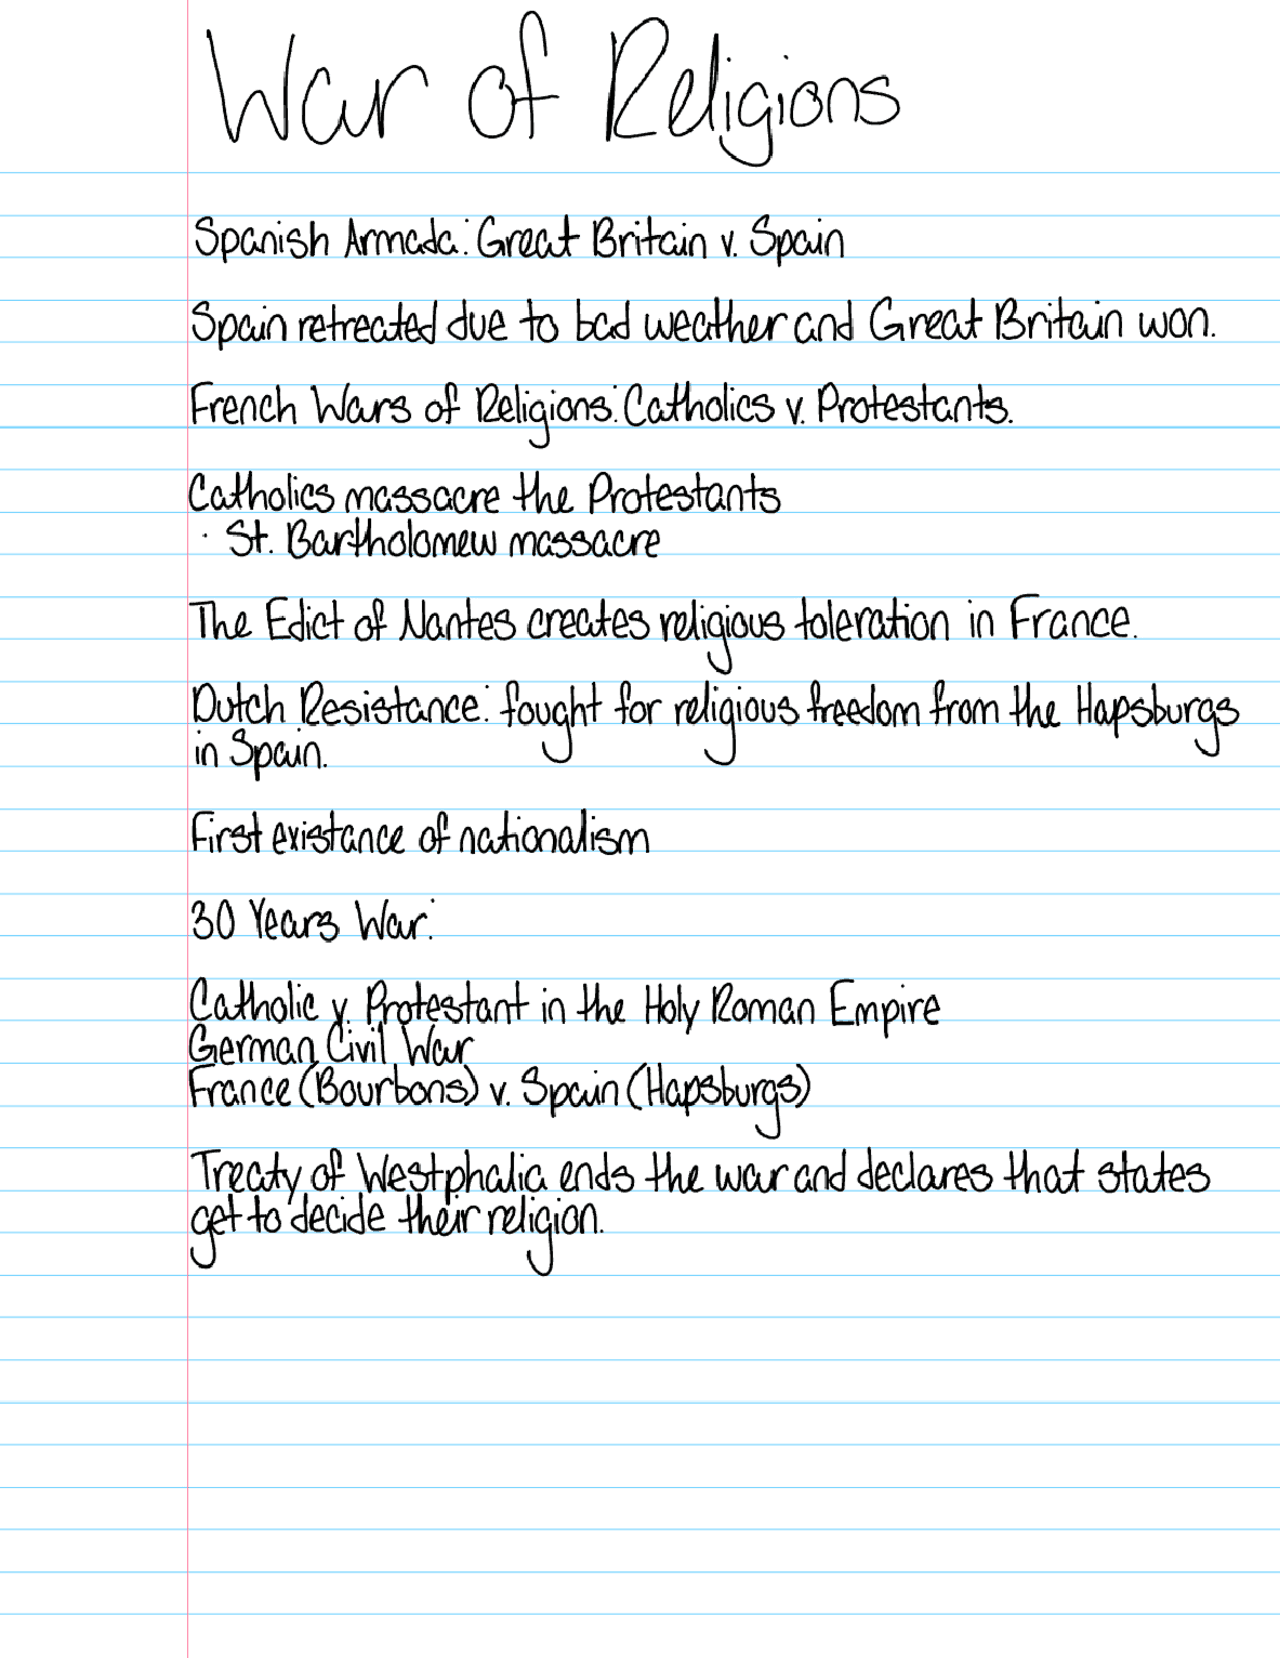 War of Religions
Spanish Armada: Great Britain v. Spain
Spain retreated due to bad weather and Great Britain won.
French Wars of Religions: Catholics v. Protestants.
Catholics massacre the Protestants
· St. Bartholomew massacre
The Edict of Nantes creates religious toleration in France.
Dutch Resistance: fought for religious freedom from the Hapsburgs
in Spain.
First existance of nationalism
30 Years War:
Catholic v. Protestant in the Holy Roman Empire
German Civil War
France (Bourbons) v. Spain (Hapsburgs)
Treaty of Westphalia ends the war and declares that states
get to decide their religion.